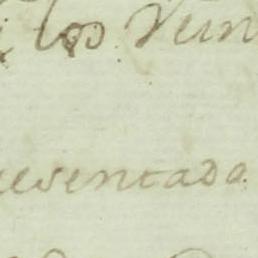 los Vein
esentado